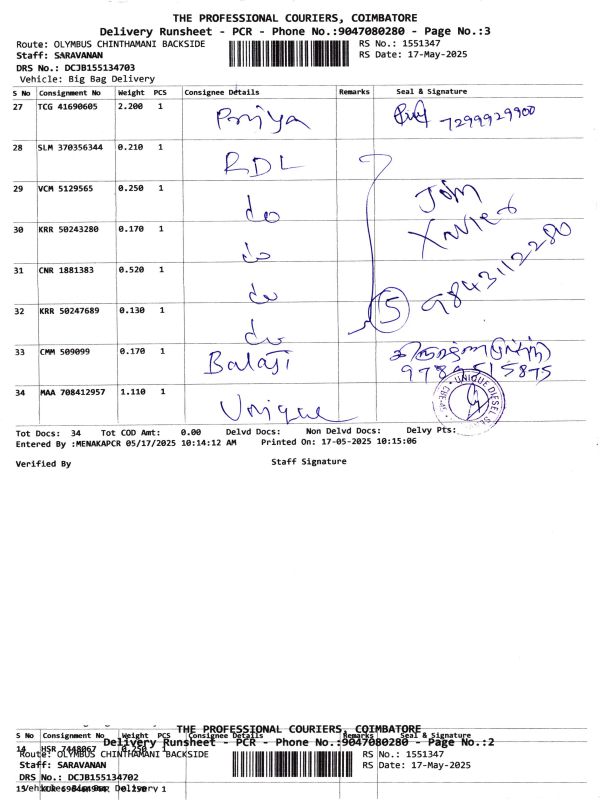 THE PROFESSIONAL COURIERS, COIMBATORE
Delivery Runsheet - PCR - Phone No.:9047080280 - Page No.:3
Route: OLYMBUS CHINTHAMANI BACKSIDE RS No.: 1551347
Staff: SARAVANAN RS Date: 17-May-2025
DRS No.: DCJB155134703
Vehicle: Big Bag Delivery
S No Consignment No Weight PCS Consignee Details Remarks Seal & Signature
27 TCG 41690605 2.200 1 Priya 7299929900
28 SLM 370356344 0.210 1 RDL
29 VCM 5129565 0.250 1 do John
30 KRR 50243280 0.170 1 do Xavier
31 CNR 1881383 0.520 1 do 5 9843112280
32 KRR 50247689 0.130 1 do
33 CMM 509099 0.170 1 Balaji 9789515875
34 MAA 708412957 1.110 1 Unique UNIQUE DIESEL
Tot Docs: 34 Tot COD Amt: 0.00 Delvd Docs: Non Delvd Docs: Delvy Pts:
Entered By :MENAKAPCR 05/17/2025 10:14:12 AM Printed On: 17-05-2025 10:15:06
Verified By Staff Signature
THE PROFESSIONAL COURIERS, COIMBATORE
S No Consignment No Weight PCS Consignee Details Remarks Seal & Signature
Delivery Runsheet - PCR - Phone No.:9047080280 - Page No.:2
14 HSR 7448067 0.250 1
Route: OLYMBUS CHINTHAMANI BACKSIDE RS No.: 1551347
Staff: SARAVANAN RS Date: 17-May-2025
DRS No.: DCJB155134702